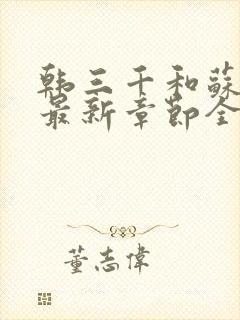 韩三千和蘇
最新章節全
董志偉